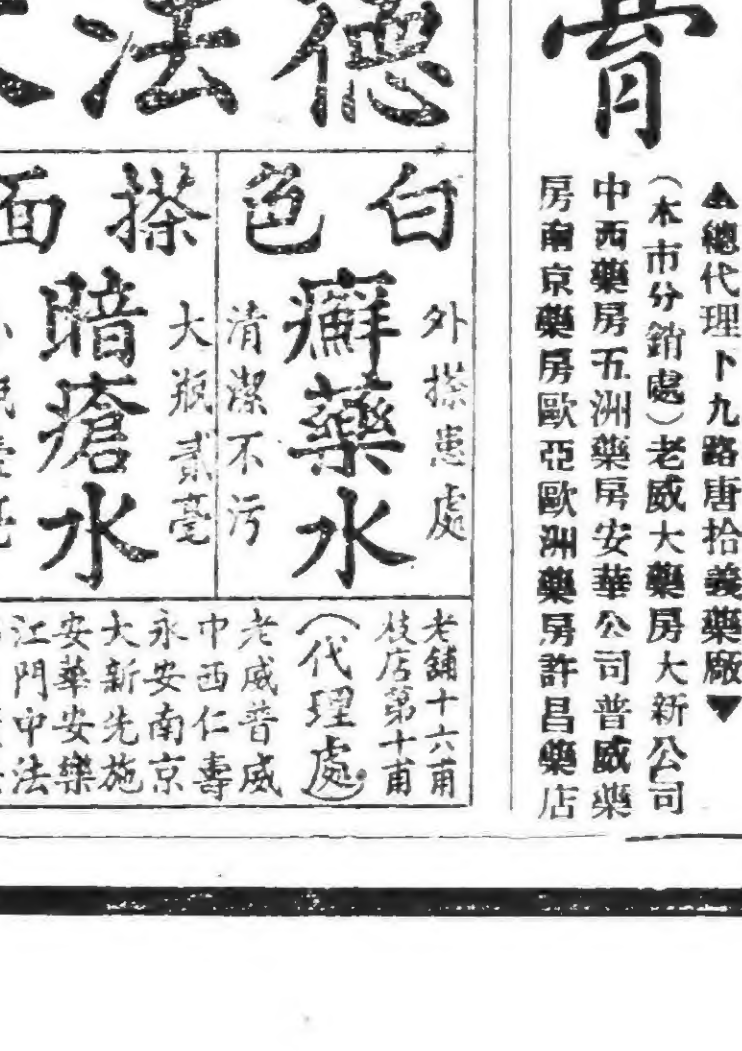 膏
▲總代理下九路唐拾義藥廠▼
(本市分銷處)老威大藥房大新公司
中西藥房五洲藥房安華公司普威藥
房南京藥房歐亞歐洲藥房許昌藥店
德法
白色
外搽患處
癬藥水
清潔不污
搽面
大瓶貳毫
暗瘡水
老舖十六甫
枝店第十甫
(代理處)
老威普威
中西仁壽
永安南京
大新先施
安華安樂
江門中法